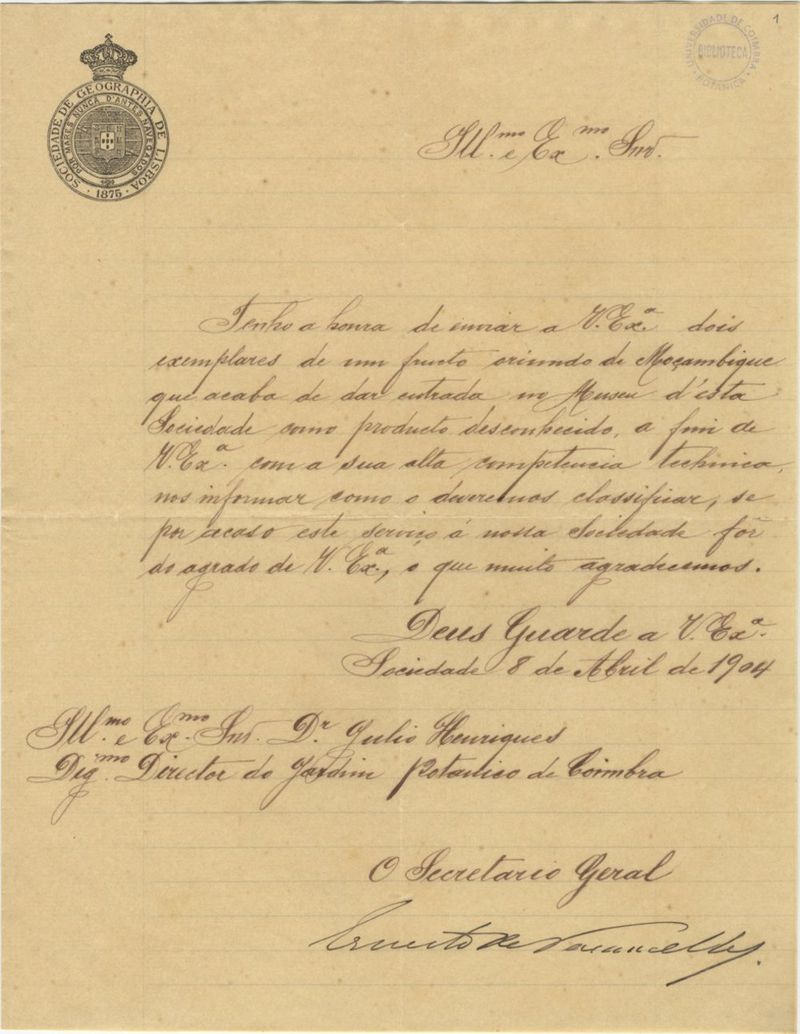 1
UNIVERSIDADE DE COIMBRA
BIBLIOTECA
BOTANICA
SOCIEDADE DE GEOGRAPHIA DE LISBOA
POR MARES NUNCA D'ANTES NAVEGADOS
1875
Ill.mo e Ex.mo Snr.
Tenho a honra de enviar a V. Ex.a dois
exemplares de um fructo oriundo de Moçambique
que acaba de dar entrada no Museu d'esta
Sociedade como producto desconhecido, a fim de
V. Ex.a com a sua alta competencia technica,
nos informar como o deveremos classificar, se
por acaso este serviço á nossa Sociedade fôr
do agrado de V. Ex.a, o que muito agradecemos.
Deus Guarde a V. Ex.a
Sociedade 8 de Abril de 1904
Ill.mo e Ex.mo Snr. Dr Julio Henriques
Dig.mo Director do Jardim Botanico de Coimbra
O Secretario Geral
Ernesto de Vasconcellos